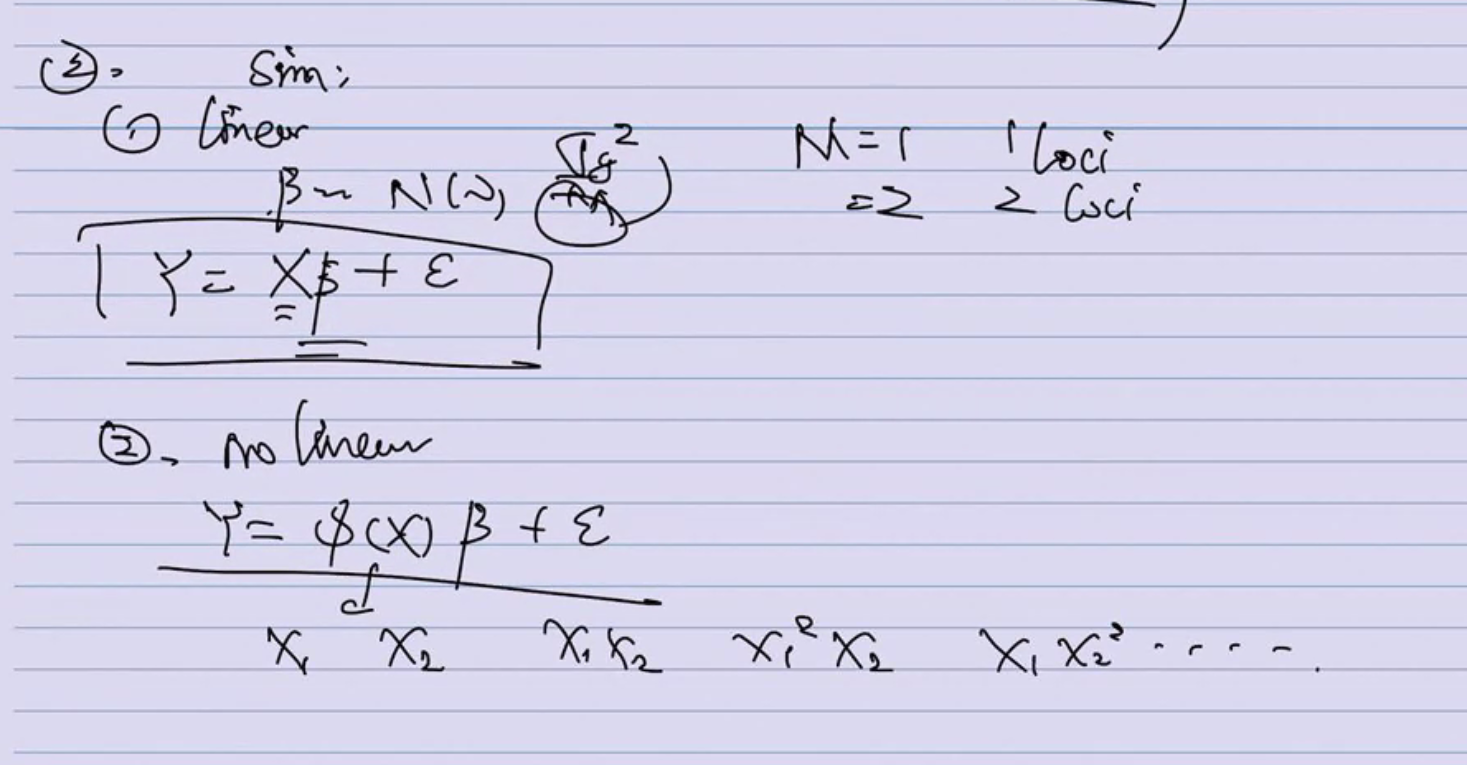 ②. Sim:
① linear
β ~ N(0, σg²/M) M=1 1 loci
=2 2 loci
Y = Xβ + ε
②. no linear
Y = φ(X) β + ε
X₁ X₂ X₁X₂ X₁²X₂ X₁X₂² .....